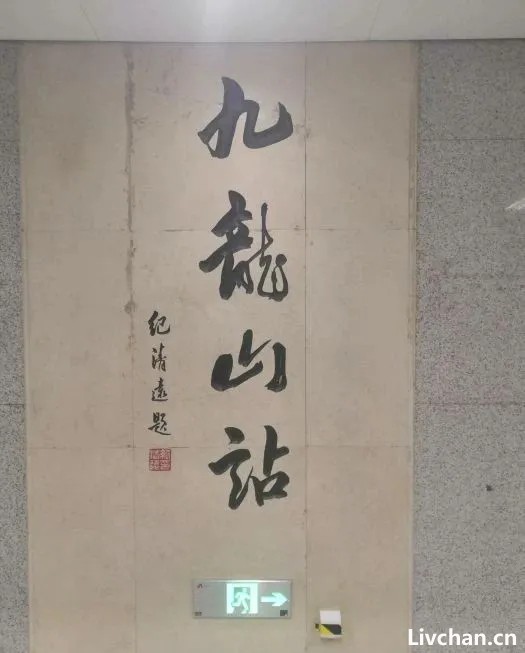 九龍山站
纪清远题
Livchan.cn